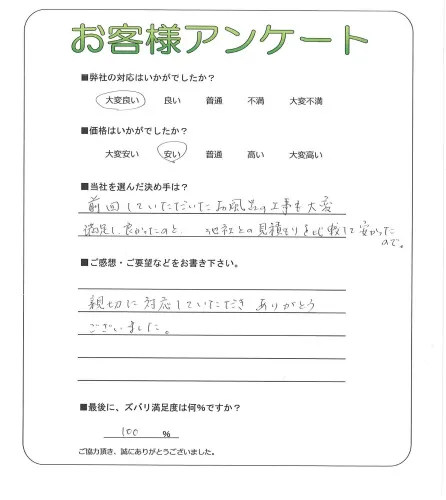 お客様アンケート
■弊社の対応はいかがでしたか？
大変良い 良い 普通 不満 大変不満
■価格はいかがでしたか？
大変安い 安い 普通 高い 大変高い
■当社を選んだ決め手は？
前回していただいたお風呂の工事も大変
満足し、良かったのと、他社との見積もりを比較して安かった
ので。
■ご感想・ご要望などをお書き下さい。
親切に対応していただき ありがとう
ございました。
■最後に、ズバリ満足度は何%ですか？
100 %
ご協力頂き、誠にありがとうございました。